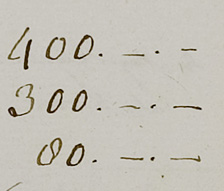 400. –. –
300. –. –
80. –. –